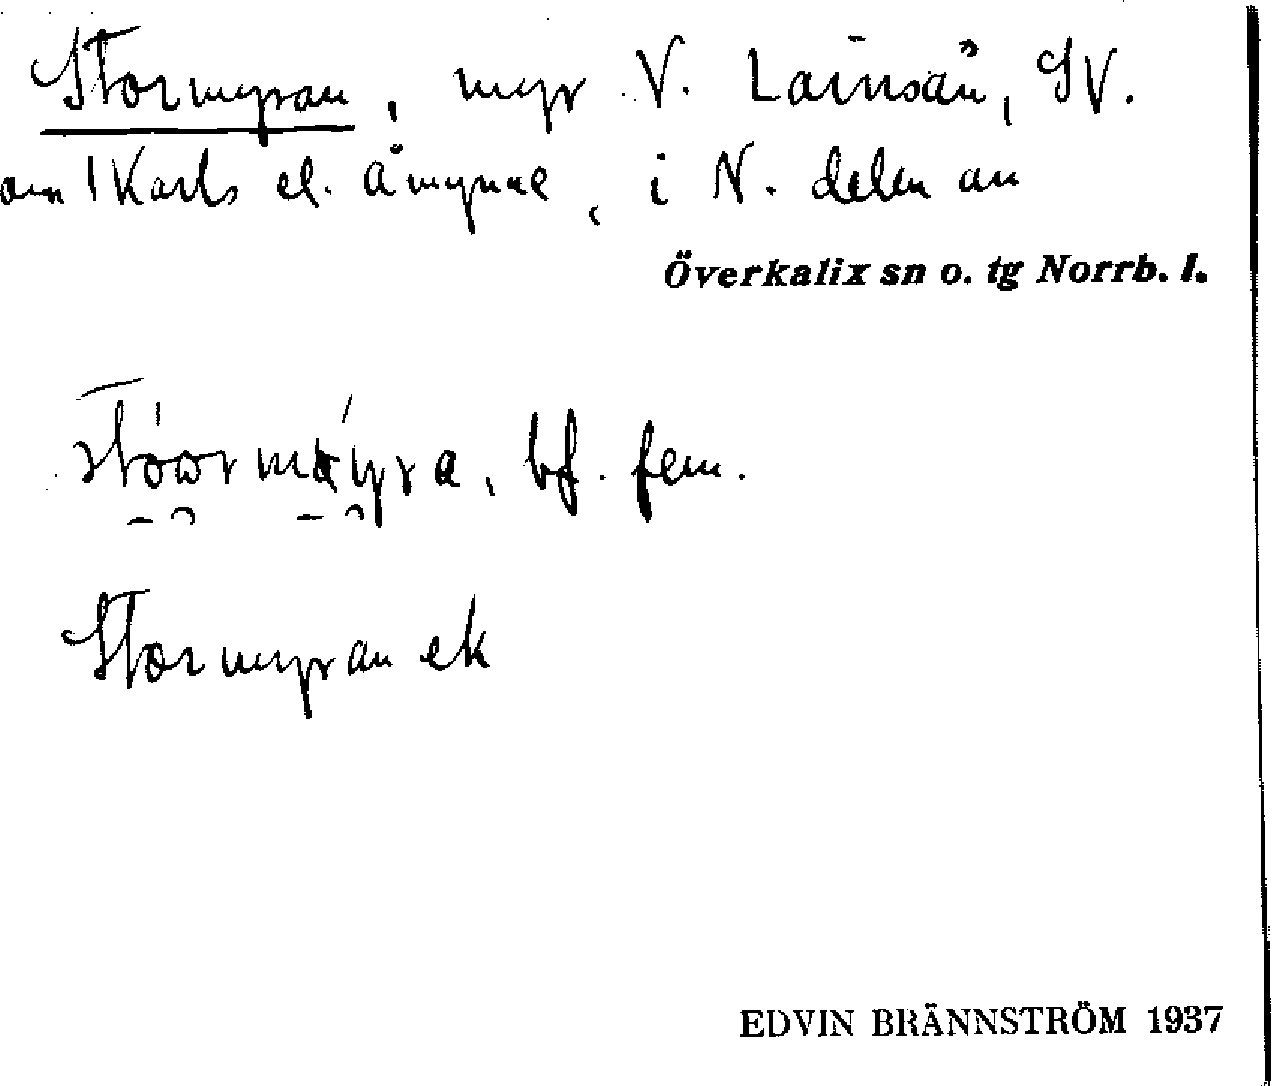 Stormyran, myr V. Lainsån, SV.
om 1 Karls el. Åmynne, i N. delen av
Överkalix sn o. tg Norrb. l.
bf. fem.
Stormyran ek
EDVIN BRÄNNSTRÖM 1937